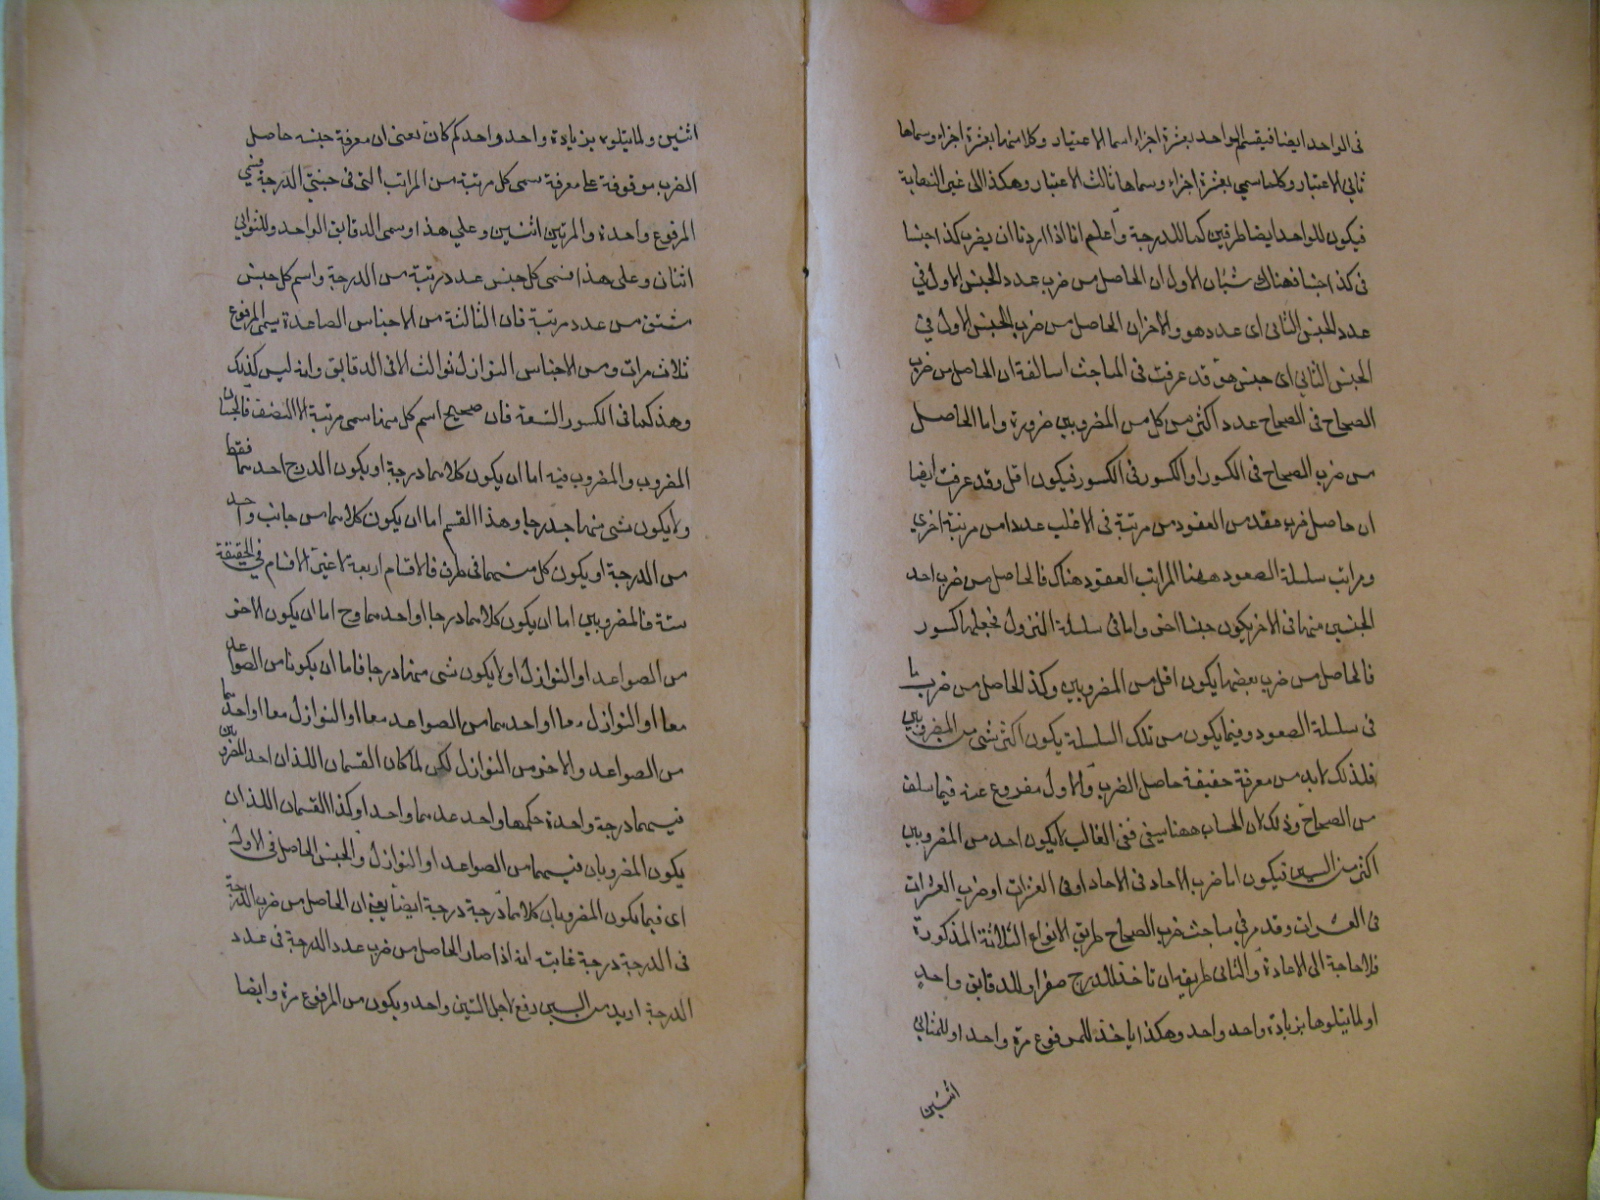 فى الواحد ايضا فيقسم الواحد بعشرة اجزاء اسما الاعتبار وكلا منها بعشرة اجزاء وسماها
ثانى الاعتبار وكلما سمي بعشرة اجزاء وسماها ثالث الاعتبار وهكذا الى غير النهاية
فيكون للواحد ايضا طرفين كما للدرجة واعلم انا اذا اردنا ان يضرب كذا جنسا
فى كذا جنسا فهناك شيئان الاول ان الحاصل من ضرب عدد الجنس الاول في
عدد الجنس الثانى اى عدد هو والاخر ان الحاصل من ضرب الجنس الاول في
الجنس الثانى اى جنس هو قد عرفت فى المباحث السالفة ان الحاصل من ضرب
الصحاح فى الصحاح عدد اكثر من كل من المضروبين ضرورة واما الحاصل
من ضرب الصحاح فى الكسور او الكسور فى الكسور فيكون اقل وقد عرفت ايضا
ان حاصل ضرب عقد من العقود من مرتبة فى الاغلب عددا من مرتبة اخرى
ومراتب سلسلة الصعود ههنا المراتب العقود هناك فالحاصل من ضرب احد
الجنسين منها فى الاخر يكون جنسا اخر واما فى سلسلة النزول فجعلها كسور
فالحاصل من ضرب بعضها يكون اقل من المضروبين وكذا الحاصل من ضرب ما
فى سلسلة الصعود وفيما يكون من تلك السلسلة يكون اكثر شى من المضروبين
فلذلك لا بد من معرفة حقيقة حاصل الضرب والاول مفروع عنه فيما سلف
من الصحاح وذلك لان الحساب ههنا سيني ففى الغالب لا يكون احد من المضروبين
اكثر من الستين فيكون اما ضرب الاحاد فى الاحاد او فى العشرات او ضرب العشرات
فى العشرات وقد مر في مباحث ضرب الصحاح طريق الانواع الثلاثة المذكورة
فلا حاجة الى الاعادة والثانى طريقه ان تاخذ للدرج صفرا وللدقايق واحد
او لما يتلوها بزيادة واحد واحد وهكذا ياخذ للمرفوع مرة واحد او للمثاني
اثنين
اثنين ولما يتلوه بزيادة واحد واحد كم كان يعنى ان معرفة جنس حاصل
الضرب موقوفة على معرفة سمى كل مرتبة من المراتب التى فى جنبتي الدرجة فسمي
المرفوع واحدة والمرتين اثنين وعلي هذا وسمى الدقايق الواحد وللثوالي
اثنان وعلى هذا فسمى كل جنس عدد مرتبة من الدرجة واسم كل جنس
مشتق من عدد مرتبة فان الثالثة من الاجناس الصاعدة يسمى المرفوع
ثلاث مرات ومن الاجناس النوازل ثوالث الا فى الدقايق وانه ليس كذلك
وهذ كما فى الكسور التسعة فان صحيح اسم كل منها سمى مرتبة الا النصف فالجنسان
المضروب والمضروب فيه اما ان يكون كلاهما درجة او يكون الدرج احدهما فقط
ولا يكون شى منهما درجا وهذا القسم اما ان يكون كلاهما من جانب واحد
من الدرجة او يكون كل منهما فى طرف فالاقسام اربعة لا غير الاقسام في الحقيقة
ستة فالمضروبين اما ان يكون كلاهما درجا او احدهما وح اما ان يكون الاخر
من الصواعد او النوازل او لا يكون شى منهما درجا فاما ان يكونا من الصواعد
معا او النوازل معا او احدهما من الصواعد معا او النوازل معا او احدهما
من الصواعد والاخر من النوازل لكن لما كان القسمان اللذان احد المضروبين
فيهما درجة واحدة حكمها واحد عدهما واحدا وكذا القسمان اللذان
يكون المضروبان فيهما من الصواعد او النوازل والجنس الحاصل فى الاول
اى فيما يكون المضروبان كلاهما درجة درجة ايضا يعنى ان الحاصل من ضرب الدرجة
فى الدرجة درجة غايته انه اذا صار الحاصل من ضرب عدد الدرجة فى عدد
الدرجة ازيد من الستين رفع لاجل الستين واحد ويكون من المرفوع مرة وايضا